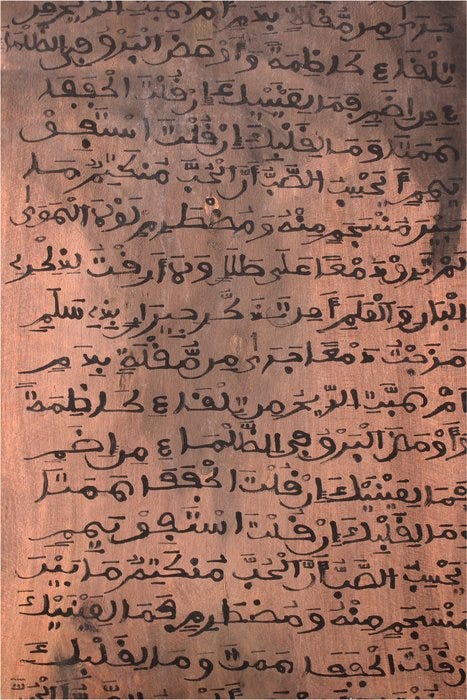 جرى من مقلة بدم ام هبت الريح من
تلقاء كاظمة واومض البرق في الظلما
ء من اضم فما لعينيك ان قلت اكففا
همتا وما لقلبك ان قلت استفق
يهم أيحسب الصب أن الحب منكتم ما
بين منسجم منه ومضطرم لولا الهوى
لم ترق دمعا على طلل ولا أرقت لذكر
البان والعلم أمن تذكر جيران بذي سلم
مزجت دمعا جرى من مقلة بدم
ام هبت الريح من تلقاء كاظمة
وأومض البرق في الظلماء من اضم
فما لعينيك ان قلت اكففا همتا
وما لقلبك ان قلت استفق يهم
أيحسب الصب أن الحب منكتم ما بين
منسجم منه ومضطرم فما لعينيك
ان قلت اكففا همتا وما لقلبك